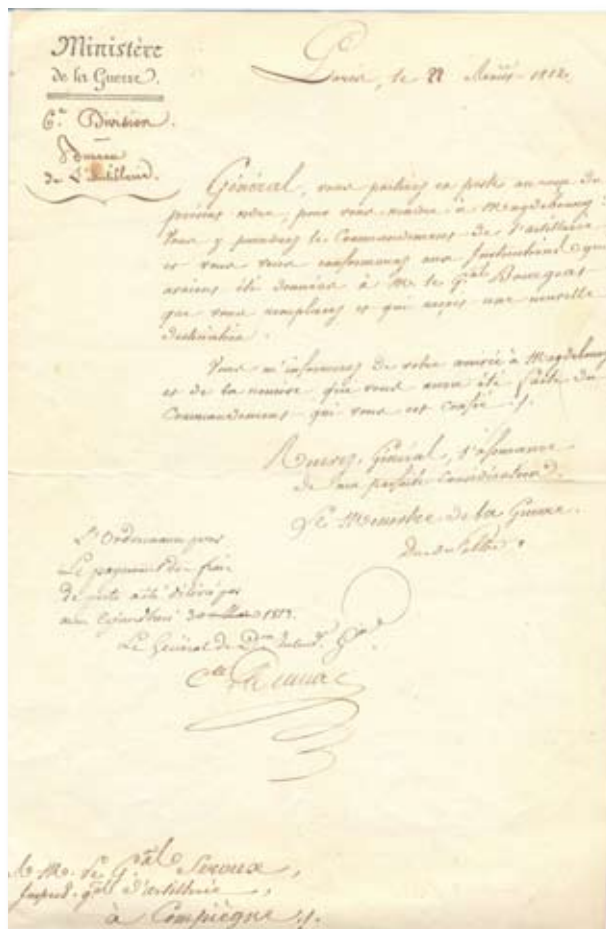 Ministère
de la Guerre.
6.e Division.
Bureau
de L'Artillerie.
Paris, le 22 1812.
Général, vous partirez en poste au reçu du
présent ordre, pour vous rendre à Magdebourg.
Vous y prendrez le Commandement de l'artillerie
et vous vous conformerez aux Instructions qui
avaient été données à M. le G.al Bourgeat
que vous remplacez et qui reçoit une nouvelle
destination.
Vous m'informerez de votre arrivée à Magdebourg
et de la remise qui vous aura été faite du
Commandement qui vous est confié.
Recevez, Général, l'assurance
de ma parfaite considération.
Le Ministre de la Guerre.
Duc de Feltre.
L'Ordonnance pour
Le payement des frais
de poste a été délivré par
1813.
Le Général de D.on
à M. Le G.al Seroux,
Inspect. g.al d'artillerie,
à Compiègne